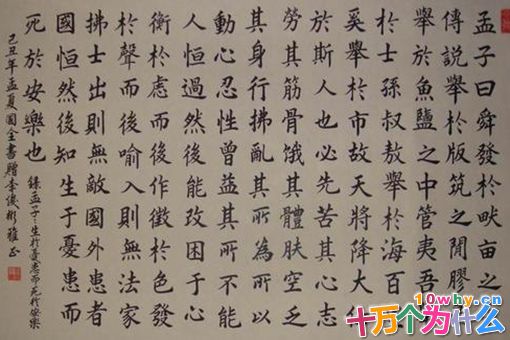 孟子曰舜發於畎亩之
傅說舉於版筑之閒膠
舉於魚鹽之中管夷吾
於士孫叔敖舉於海百
奚舉於市故天將降大
於斯人也必先苦其心志
勞其筋骨饿其體肤空乏
其身行拂亂其所為所以
動心忍性曾益其所不能
人恒過然後能改困于心
衡於慮而後作徵於色發
於聲而後喻入則無法家
拂士出則無敵國外患者
國恒然後知生于憂患而
死於安樂也
錄孟子生於憂患而死於安樂
己丑年孟夏國全書贈李俊彬雅正
10why.cn
十万个为什么